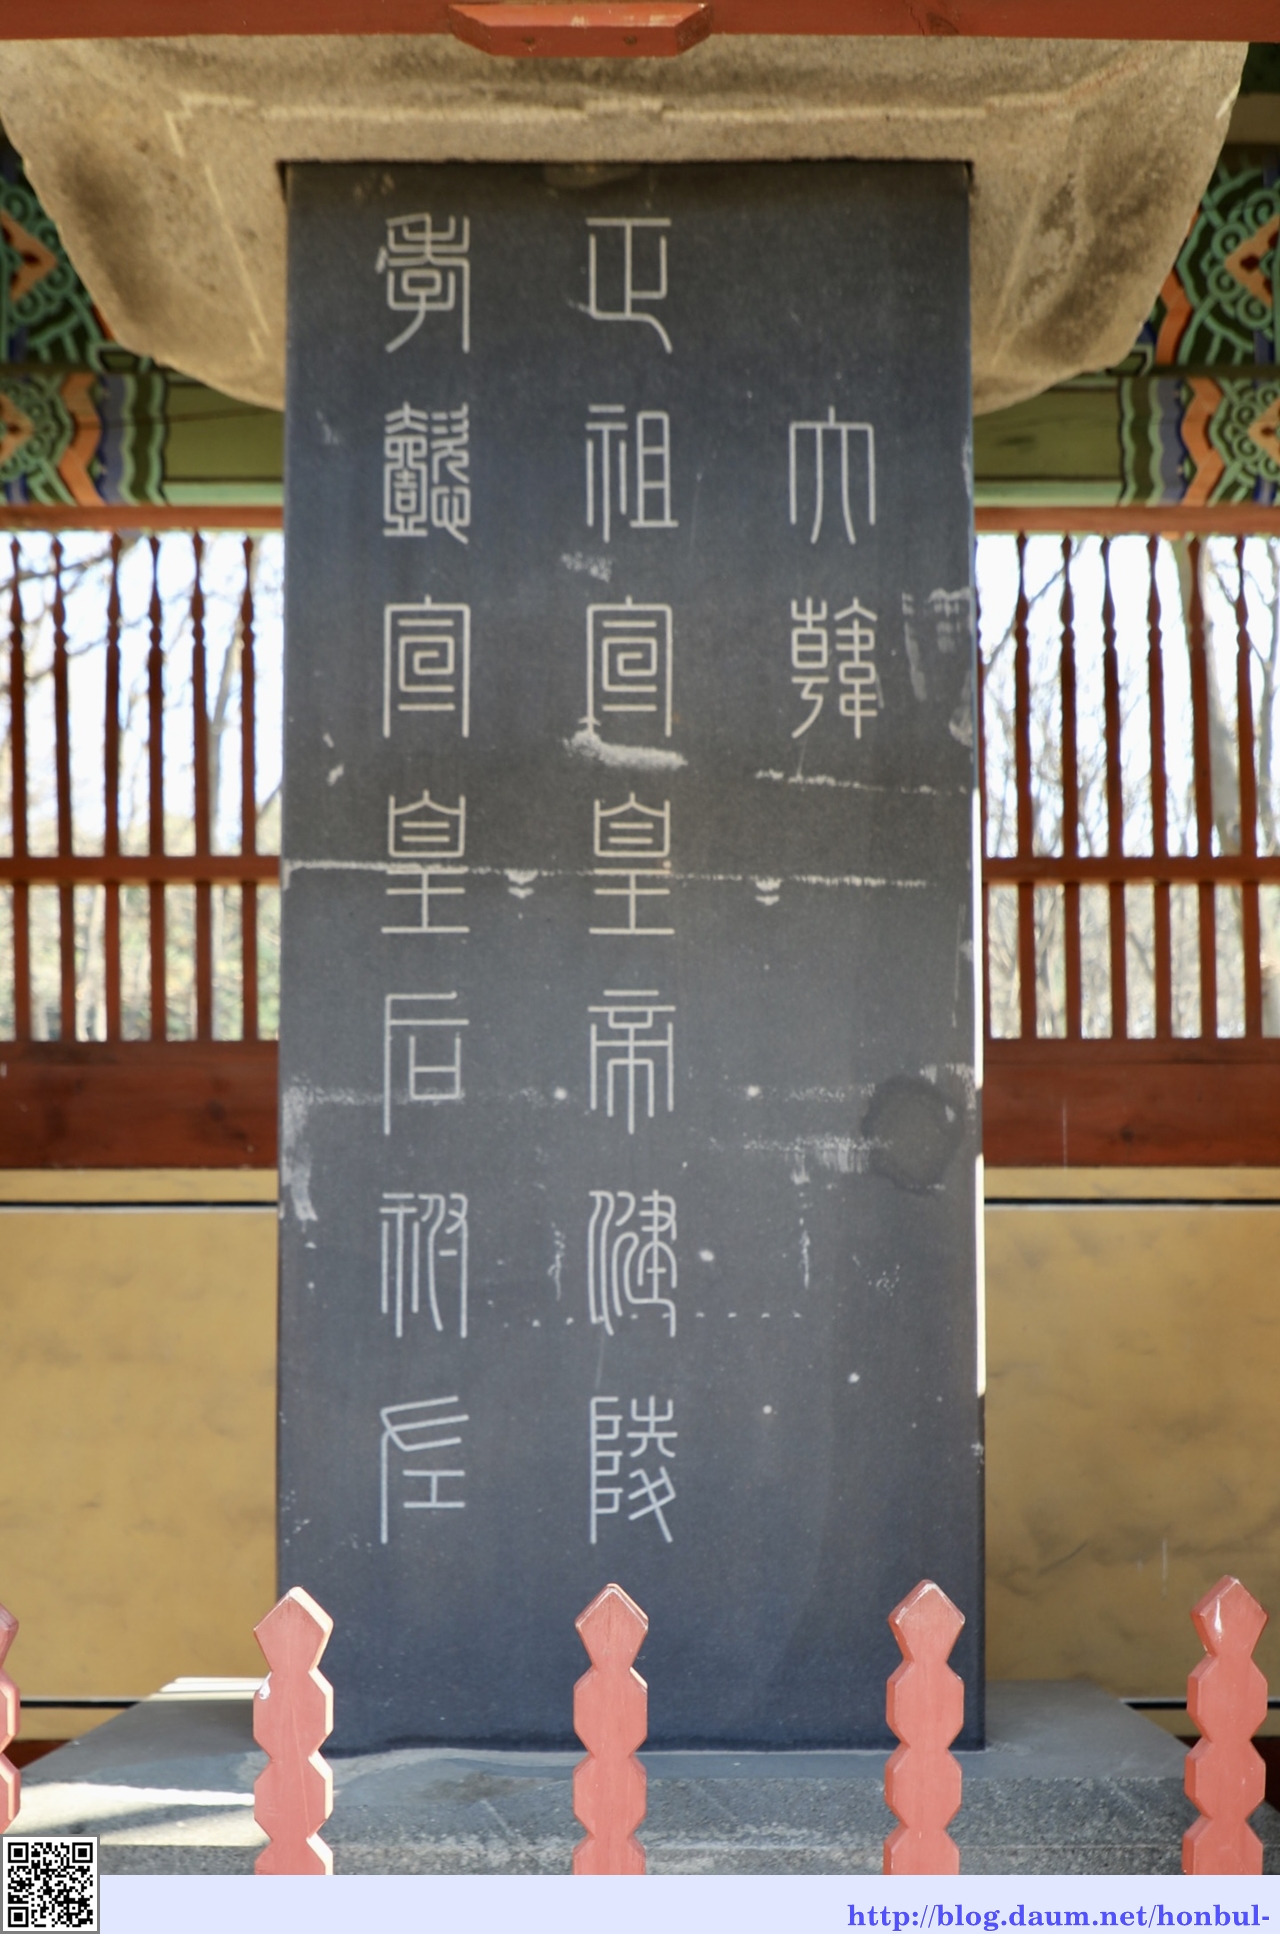 大韓
正祖宣皇帝健陵
孝懿宣皇后祔左
http://blog.daum.net/honbul-